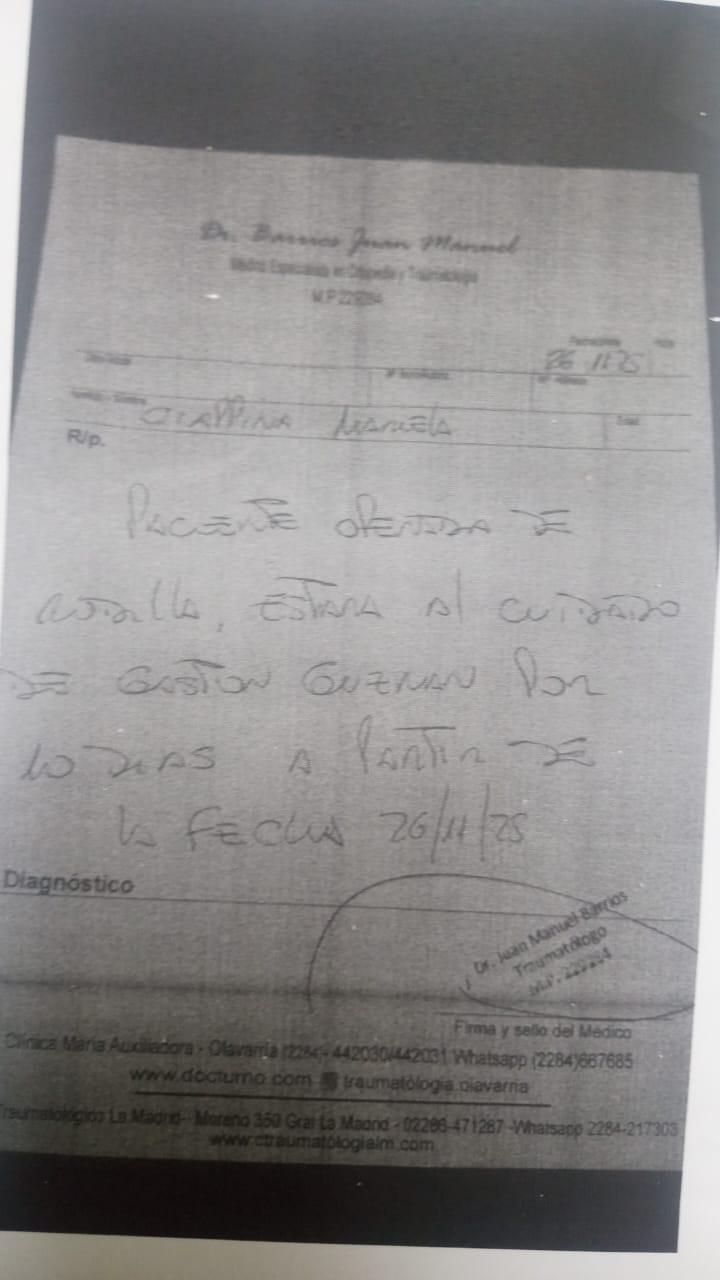 Dr. Barrios Juan Manuel
Médico Especialista en Ortopedia y Traumatología
M.P 229284
26 11 25
Manuela
R/p.
PACIENTE OPERADA DE
RODILLA, ESTARA Al CUIDADO
DE GASTON GUZMAN POR
10 DIAS A PARTIR DE
LA FECHA 26/11/25
Diagnóstico
Dr. Juan Manuel Barrios
Traumatólogo
Firma y sello del Médico
Clínica María Auxiliadora - Olavarría (2284) - 442030/442031 Whatsapp (2284)667685
www.docturno.com traumatologia.olavarria
Traumatológico La Madrid- Moreno 350 Gral La Madrid - 02286-471287 -Whatsapp 2284-217303
www.ctraumatologialm.com